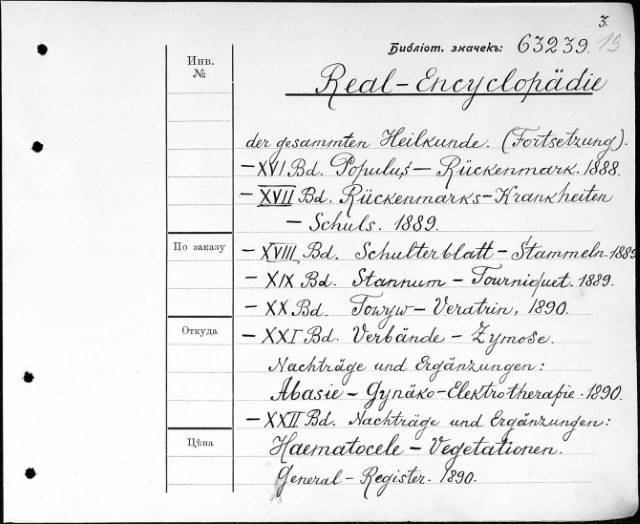 3.
Библіот. значекъ: 63239. 19
Инв.
№
Real-Encyclopädie
der gesammten Heilkunde. (Fortsetzung).
— XVI Bd. Populus — Rückenmark. 1888.
— XVII Bd. Rückenmarks-Krankheiten
— Schuls. 1889.
По заказу
— XVIII Bd. Schulterblatt — Stammeln. 1889
— XIX Bd. Stannum — Tourniquet. 1889.
— XX Bd. Towyw — Veratrin, 1890.
Откуда
— XXI Bd. Verbände — Zymose.
Nachträge und Ergänzungen:
Abasie — Gynäko-Elektrotherapie. 1890.
— XXII Bd. Nachträge und Ergänzungen:
Цѣна
Haematocele — Vegetationen.
General-Register. 1890.